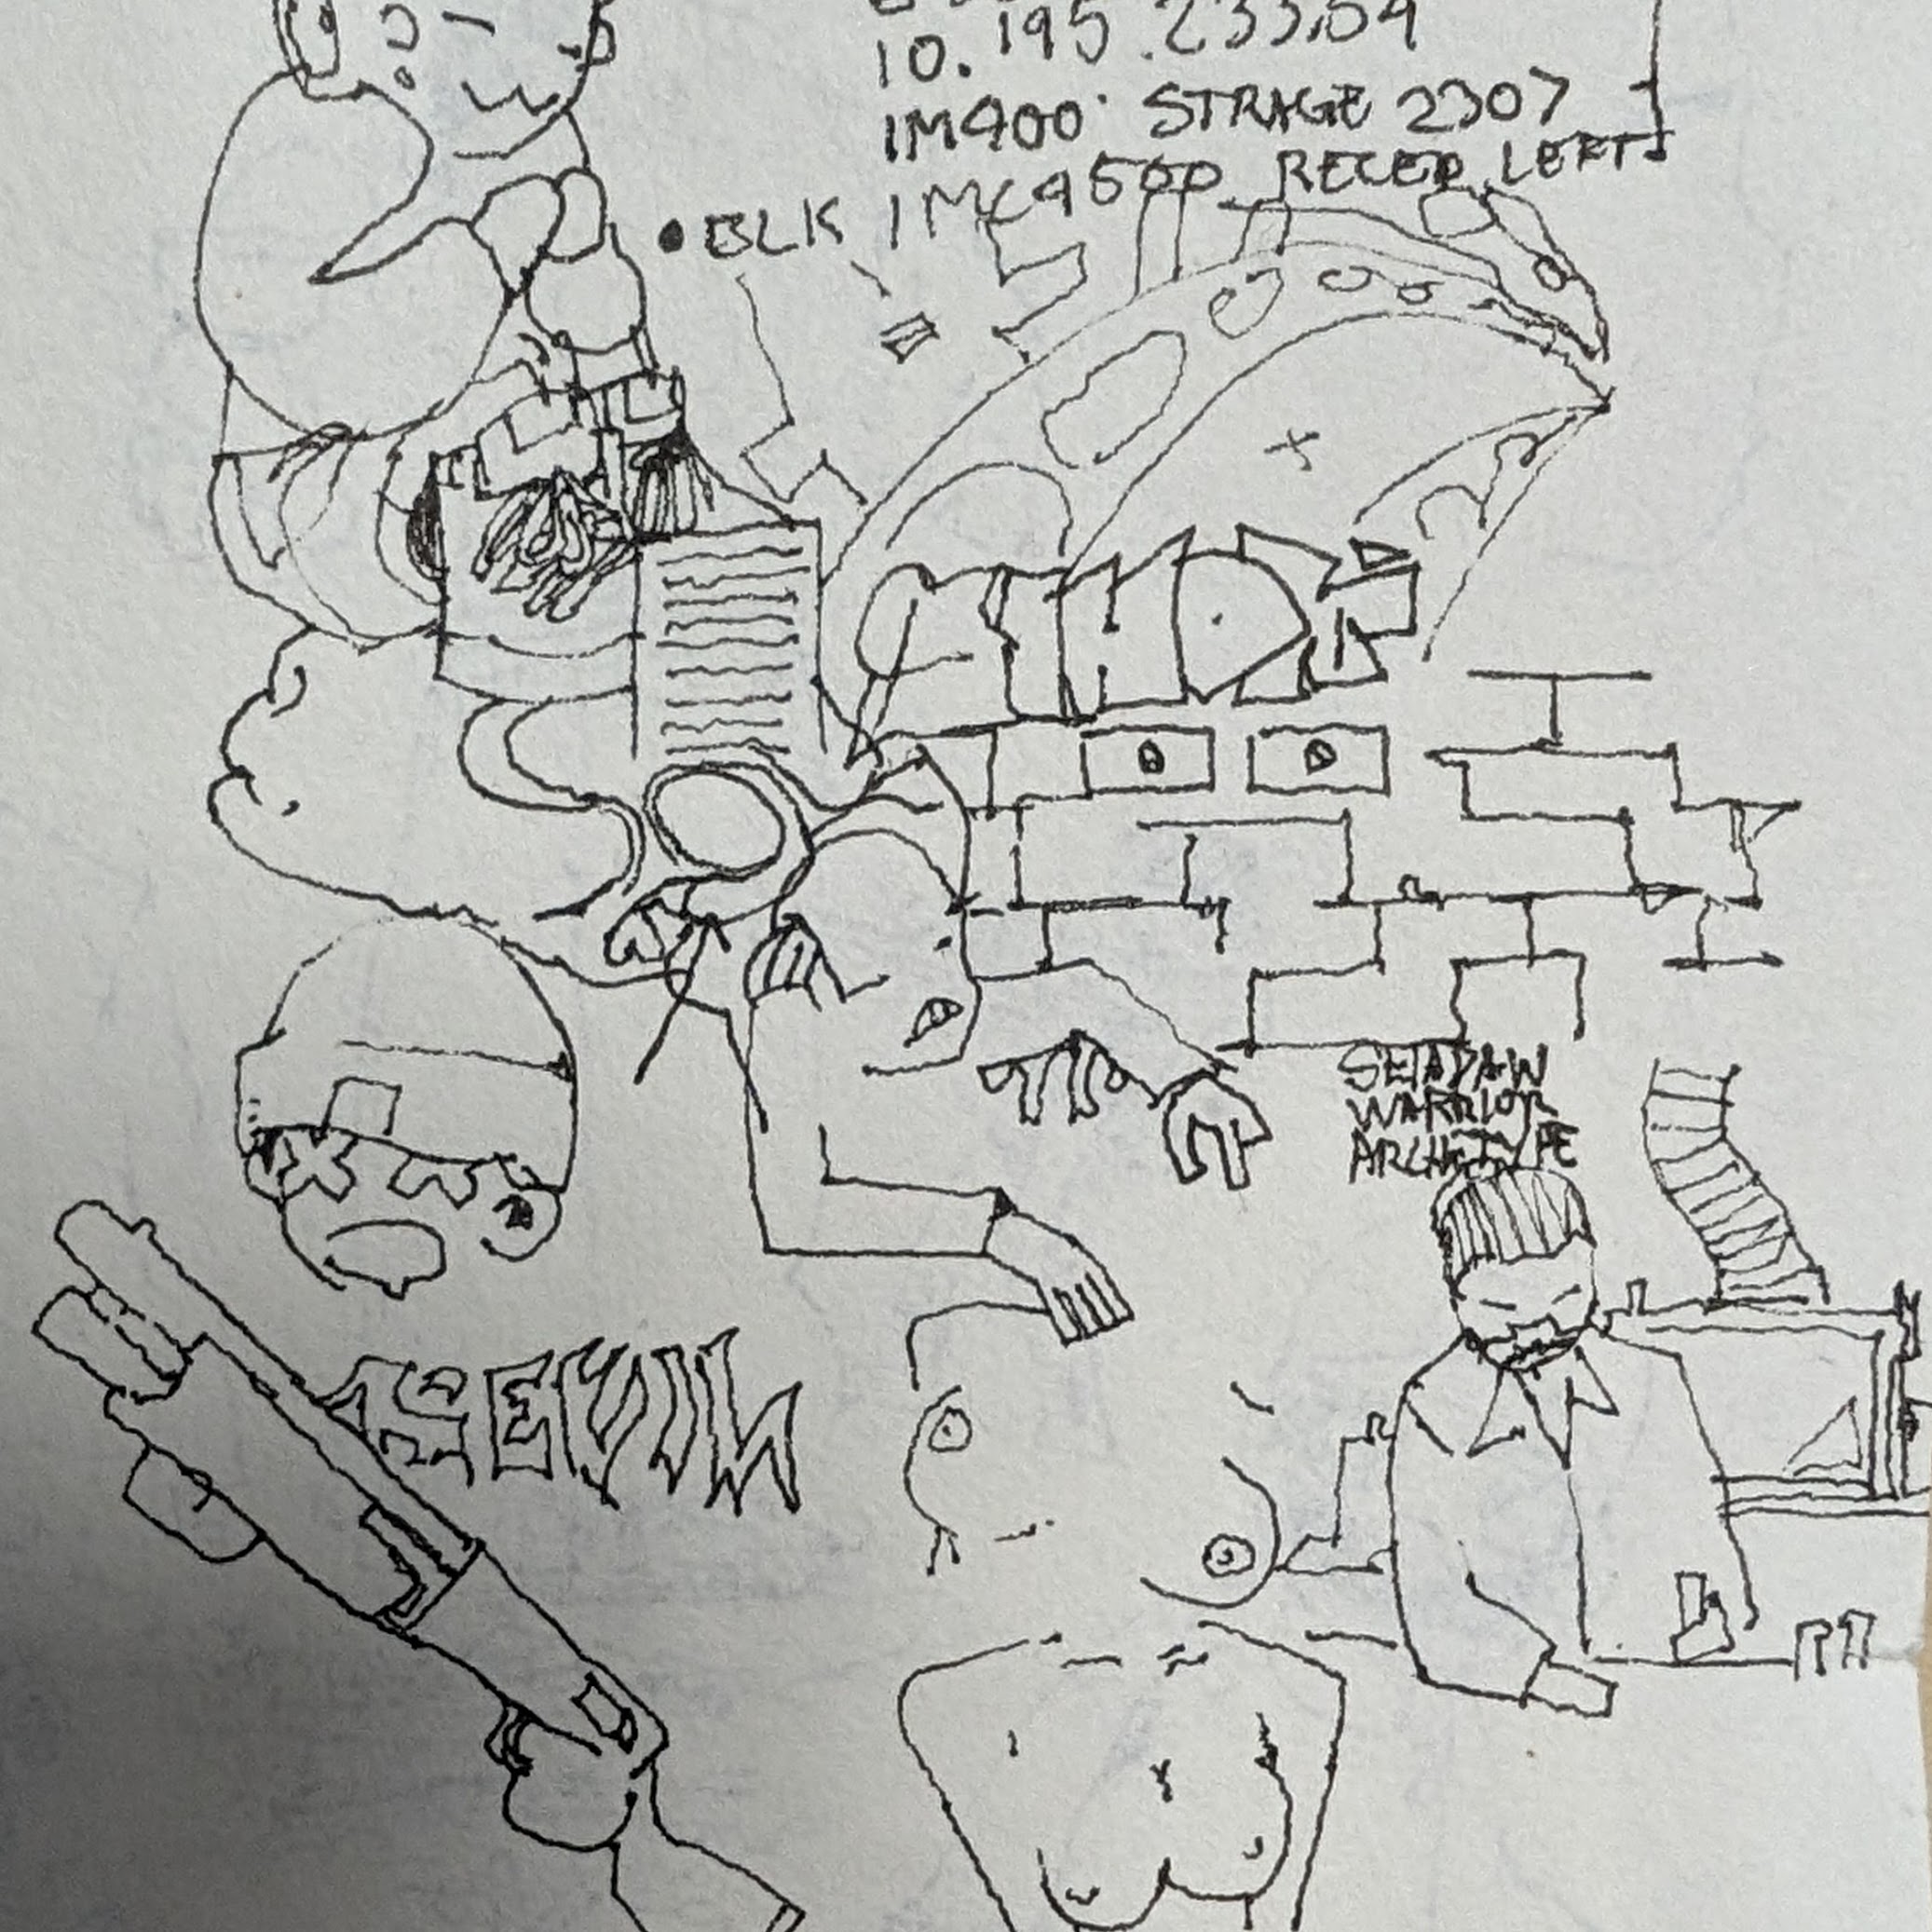 10.195.233.59
IM900 STRAGE 2307
BLK IMC9500 RECEP LEFT
SETADAW
WARRIOR
ARCHETYPE
SEVIL